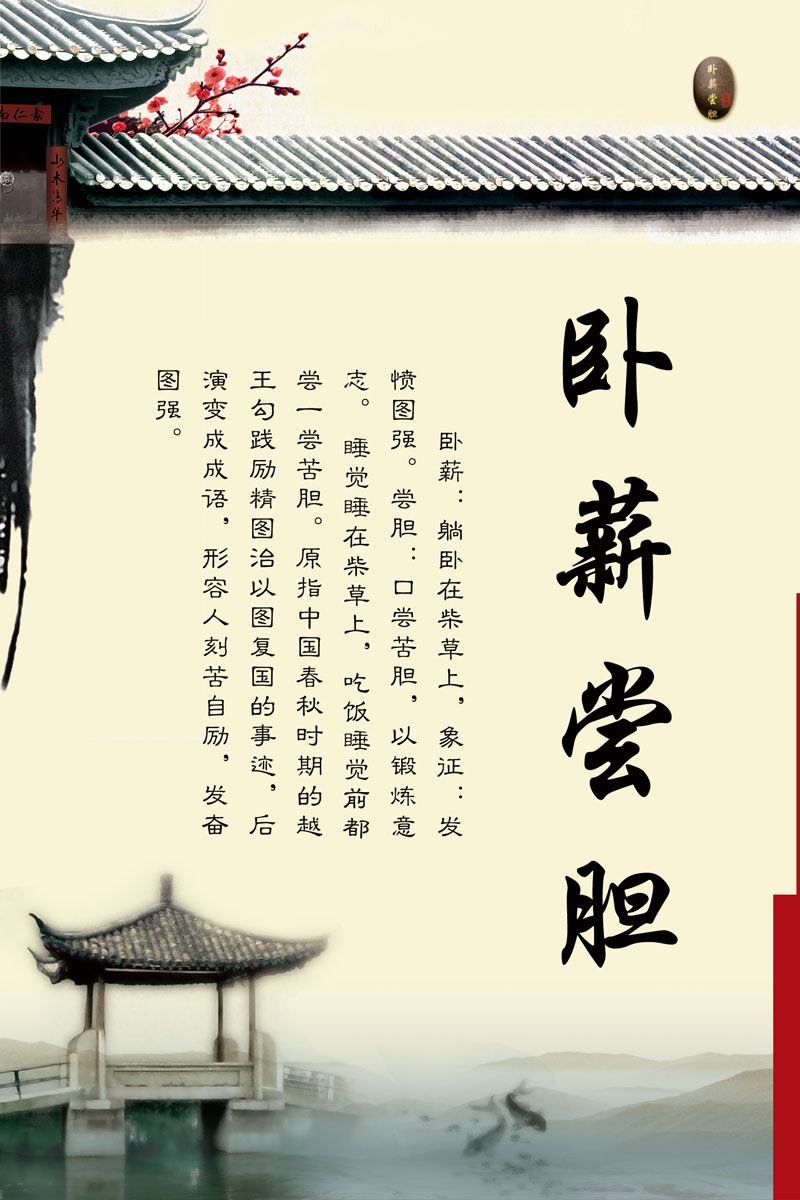 卧薪尝胆
卧薪：躺卧在柴草上，象征：发
愤图强。尝胆：口尝苦胆，以锻炼意
志。睡觉睡在柴草上，吃饭睡觉前都
尝一尝苦胆。原指中国春秋时期的越
王勾践励精图治以图复国的事迹，后
演变成成语，形容人刻苦自励，发奋
图强。
卧薪尝胆
山木清华